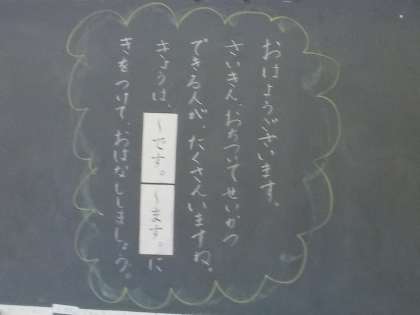 おはようございます。
さいきん、おちついてせいかつ
できる人が、たくさんいますね。
きょうは、～です。～ます。に
きをつけて、おはなししましょう。